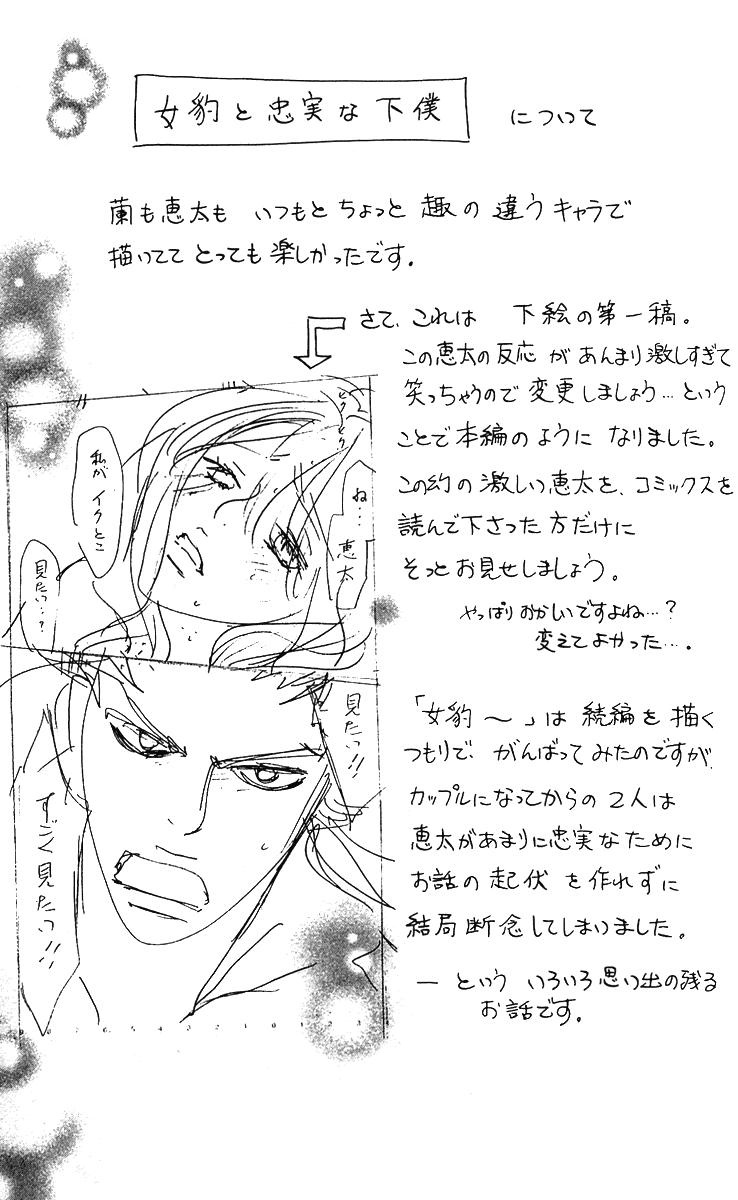 女豹と忠実な下僕 について
蘭も恵太も いつもとちょっと 趣の 違うキャラで
描いてて とっても 楽しかったです。
さて、これは 下絵の第一稿。
この恵太の反応 が あんまり激しすぎて
笑っちゃうので 変更しましょう…という
ことで本編のように なりました。
この幻の激しい恵太を、コミックスを
読んで下さった方だけに
そっとお見せしましょう。
やっぱりおかしいですよね…?
変えてよかった…。
「女豹〜」は 続編を 描く
つもりで、がんばってみたのですが
カップルになってからの 2人は
恵太があまりに忠実なために
お話の 起伏 を 作れずに
結局断念してしまいました。
― という いろいろ思い出の残る
お話です。
ドクドク
ね…
恵太
私が イクとこ
見たい…?
見たい!!
すごく見たい!!